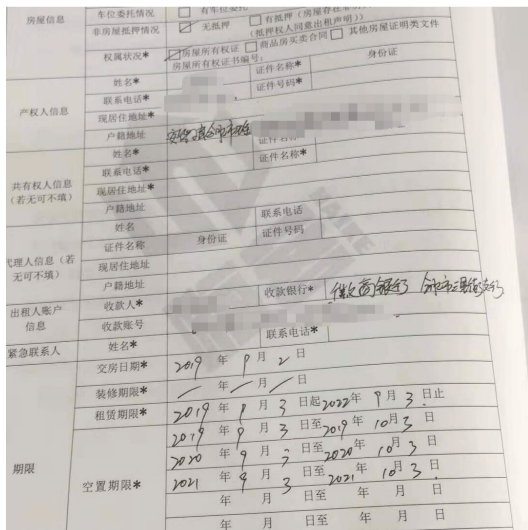 房屋信息 车位委托情况 □ 有车位委托
非房屋抵押情况 ☑ 无抵押 □ 有抵押（房屋存在
(抵押权人同意出租声明))
权属状况* ☑房屋所有权证 □ 商品房买卖合同 □ 其他房屋证明类文件
房屋所有权证书编号:
产权人信息 姓名* 证件名称* 身份证
联系电话* 证件号码*
现居住地址*
户籍地址 安徽省
共有权人信息（若无可不填） 姓名*
联系电话* 证件名称*
现居住地址*
户籍地址
代理人信息（若无可不填） 姓名 联系电话
证件名称 身份证 证件号码
现居住地址
户籍地址
出租人账户信息 收款人* 收款银行*
收款账号
紧急联系人 姓名* 联系电话*
期限 交房日期* 2019 年 9 月 2 日
装修期限* / 年 / 月 / 日
租赁期限* 2019 年 9 月 3 日起2022年 9月 3 日止
空置期限* 2019 年 9 月 3 日至2019年 10月 3 日
2020 年 9 月 3 日至2020年 10月 3 日
2021 年 9 月 3 日至2021年 10月 3 日
年 月 日至 年 月 日
年 月 日至 年 月 日